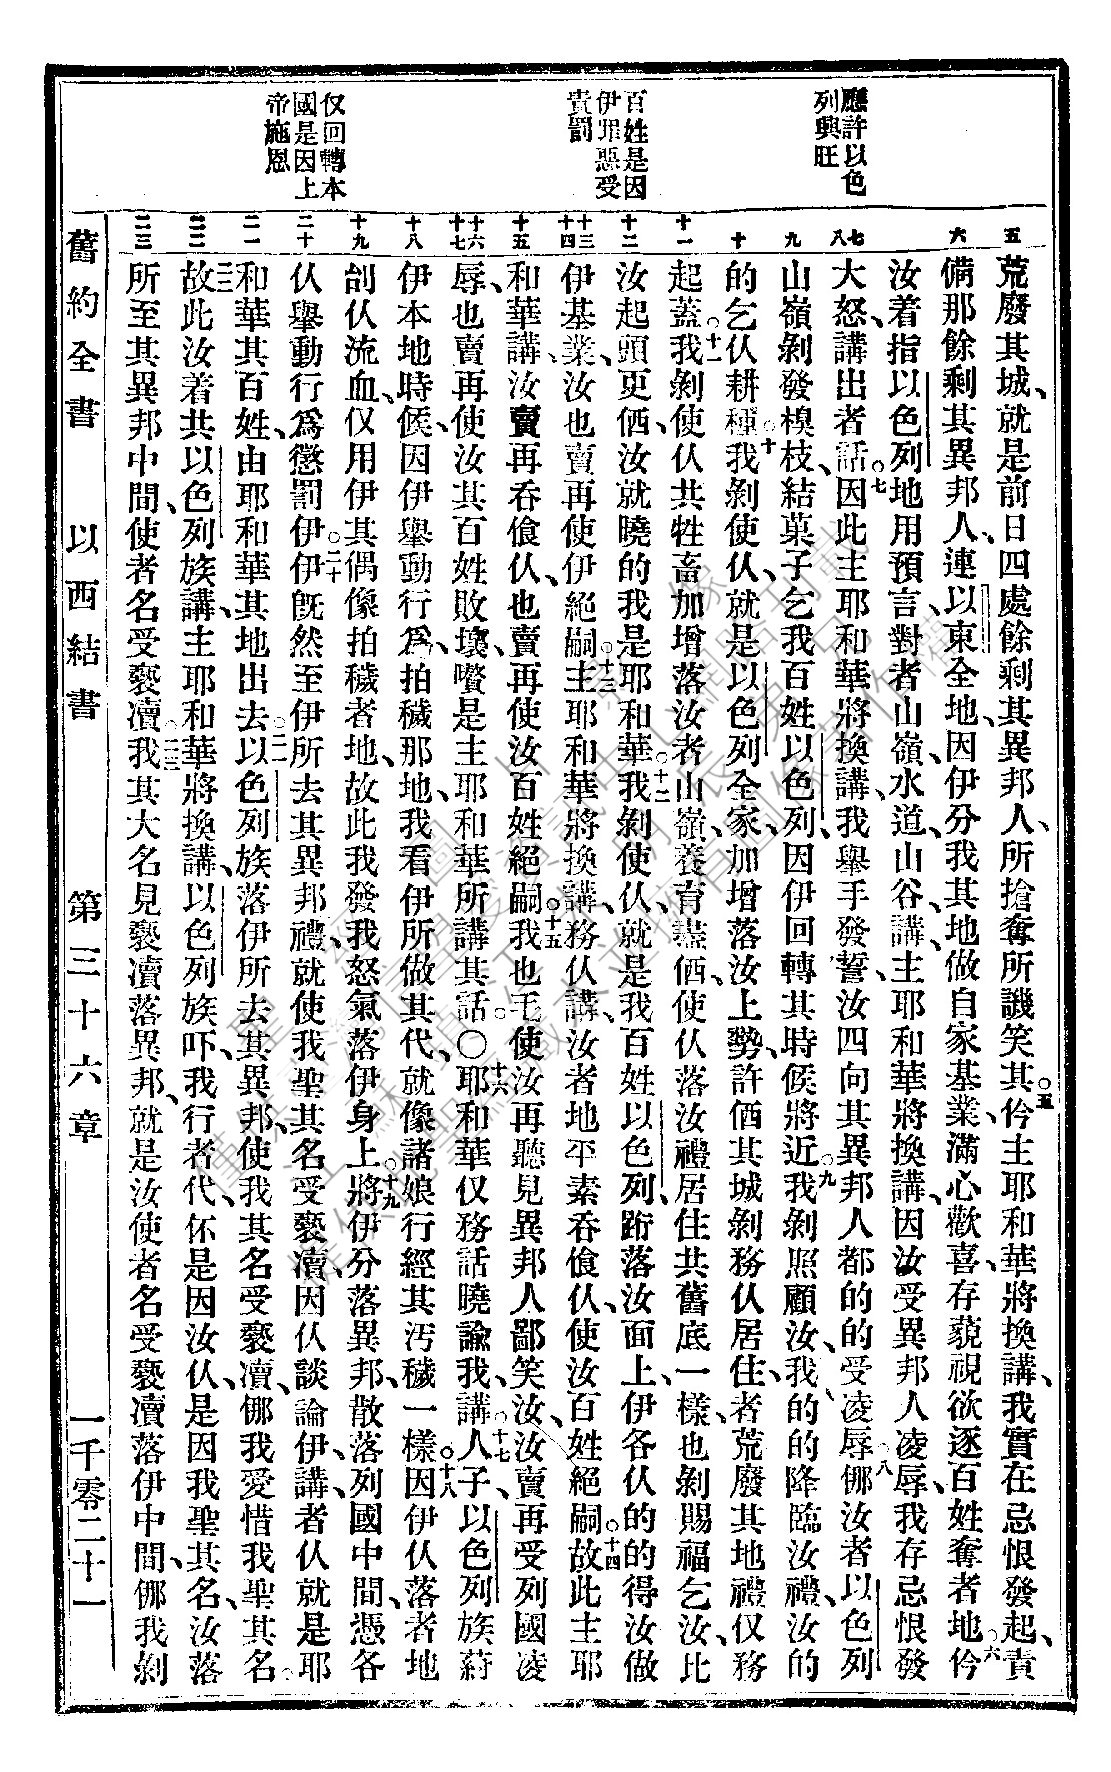 應許以色
列興旺
百姓是因
伊罪惡受
責罰
仅回轉本
國是因上
帝施恩
五
六
七 八
九
十
十一
十二
十三 十四
十五
十六 十七
十八
十九
二十
二一
二二
二三
荒廢其城、就是前日四處餘剩其異邦人、所搶奪所譏笑其。五仱主耶和華將換講、我實在忌恨發起、責
備那餘剩其異邦人、連以東全地、因伊分我其地做自家基業、滿心歡喜、存藐視欲逐百姓奪者地。六仱
汝着指以色列地用預言、對者山嶺、水道、山谷、講、主耶和華將換講、因汝受異邦人凌辱、我存忌恨發
大怒、講出者話。七因此主耶和華將換講、我舉手發誓、汝四向其異邦人都的的受凌辱。八㑚汝者以色列
山嶺剝發模枝、結菓子乞我百姓以色列、因伊回轉其時候將近。九我剝照顧汝、我的的降臨汝禮、汝的
的乞仈耕種。十我剝使仈、就是以色列全家、加增落汝上勢、許価其城剝務仈居住、者荒廢其地禮仅務
起蓋。十一我剝使仈共牲畜加增落汝者山嶺、養育蓋価、使仈落汝禮居住共舊底一樣、也剝賜福乞汝、比
汝起頭更価、汝就曉的我是耶和華。十二我剝使仈、就是我百姓以色列、跡落汝面上、伊各仈的的得汝做
伊基業、汝也賣再使伊絕嗣。十三主耶和華將換講、務仈講、汝者地平素吞飠仈、使汝百姓絕嗣。十四故此主耶
和華講、汝賣再吞飠仈、也賣再使汝百姓絕嗣、我也乇使汝再聽見異邦人鄙笑汝、汝賣再受列國凌
辱、也賣再使汝其百姓敗壞、嚽是主耶和華所講其話。〇十六耶和華仅務話曉諭我、講。十七人子、以色列族蒞
伊本地時候、因伊舉動行爲、拍穢那地、我看伊所做其代、就像諸娘行經其汚穢一樣。十八因伊仈落者地
刣仈流血、仅用伊其偶像拍穢者地、故此我發我怒氣落伊身上。十九將伊分落異邦、散落列國中間、憑各
仈舉動行爲懲罰伊。二十伊既然至伊所去其異邦禮、就使我聖其名受褻瀆、因仈談論伊、講、者仈就是耶
和華其百姓、由耶和華其地出去。二一以色列族落伊所去其異邦、使我其名受褻瀆、㑚我愛惜我聖其名。
二二故此汝着共以色列族講、主耶和華將換講、以色列族吓、我行者代、怀是因汝仈、是因我聖其名、汝落
所至其異邦中間、使者名受褻瀆。二三我其大名見褻瀆落異邦、就是汝使者名受褻瀆落伊中間、㑚我剝
舊約全書 以西結書 第三十六章 一千零二十一